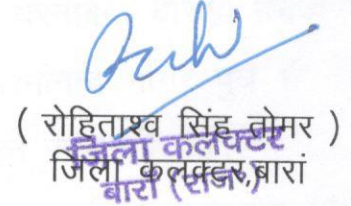 ( रोहिताश्व सिंह तोमर )
जिला कलक्टर
जिला कलक्टर,बारां
बारां (राज.)